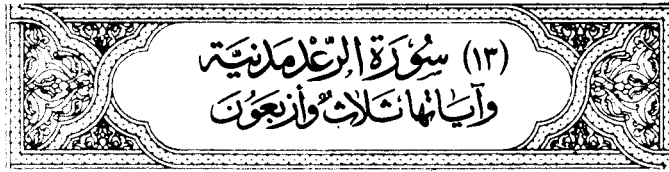 (١٣) سُورَة الرَّعْد مَدَنيَّة
وَآيَاتهَا ثَلاثٌ وَأَرْبَعُونَ